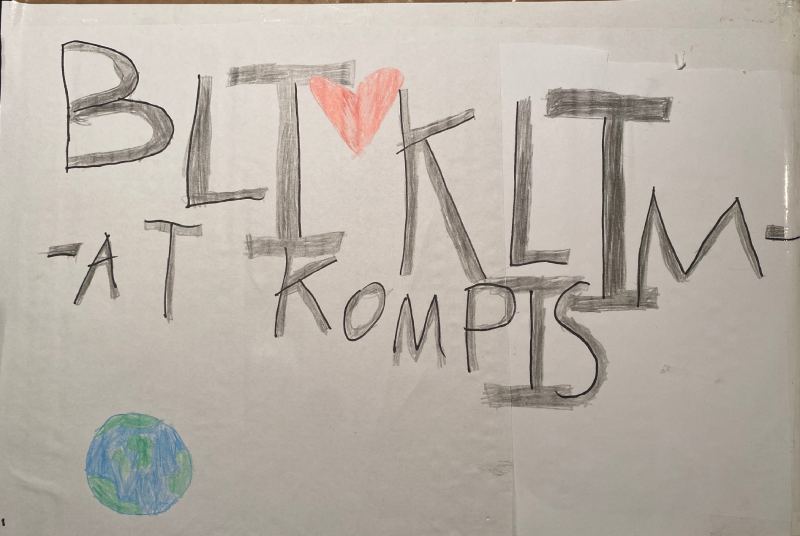 BLI KLIM-
-AT KOMPIS